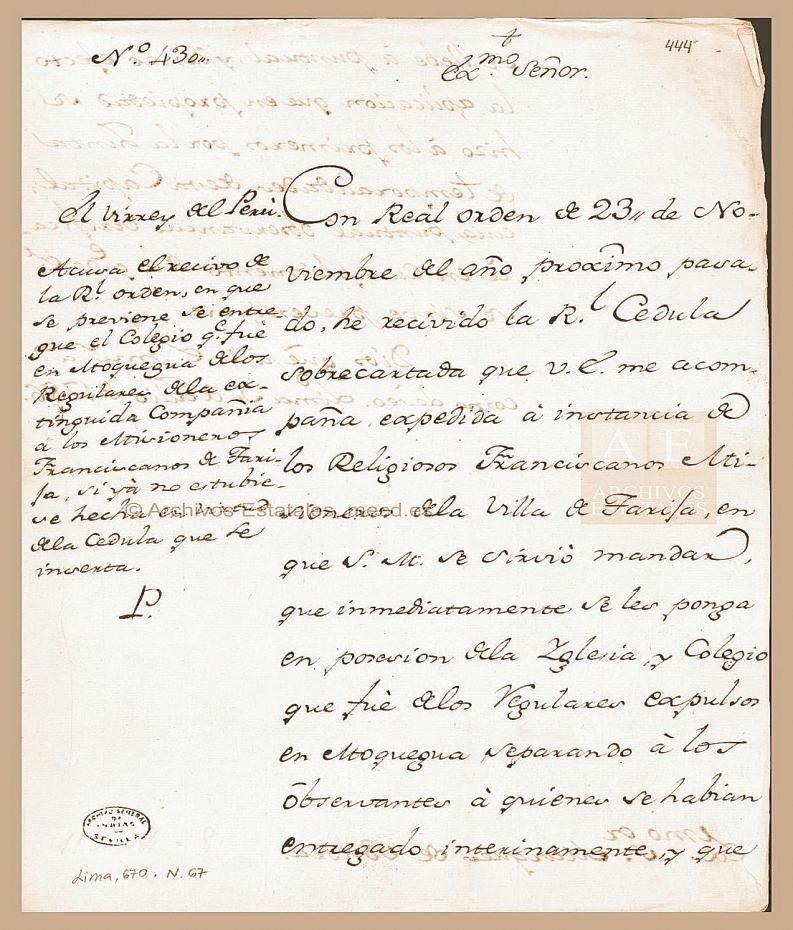 444
N.º 430,,
Ex.mo Señor.
El Virrey del Perú.
Acusa el recivo de
la R.l orden, en que
se previene se entre-
gue el Colegio q.e fué
en Moquegua delos
Regulares dela ex-
tinguida Compañia
a los Misioneros
Franciscanos de Tari-
ja, si yà no estubie-
se hecha en
dela Cedula que se
inserta.
P.
Con Real orden de 23,, de No-
viembre del año proximo pasa-
do, he recivido la R.l Cedula
sobrecartada que V.E. me acom-
paña, expedida à instancia de
los Religiosos Franciscanos Mi-
sioneros dela Villa de Tarija, en
que S. M. se sirviò mandar,
que inmediatamente se les ponga
en posesion dela Yglesia, y Colegio
que fuè delos Regulares expulsos
en Moquegua separando à los
Observantes à quienes se habian
entregado interinamente, y que
© Archivos Estatales, mecd.es
AE
ARCHIVOS
ARCHIVO GENERAL
DE
INDIAS
SEVILLA
Lima, 670. N. 67